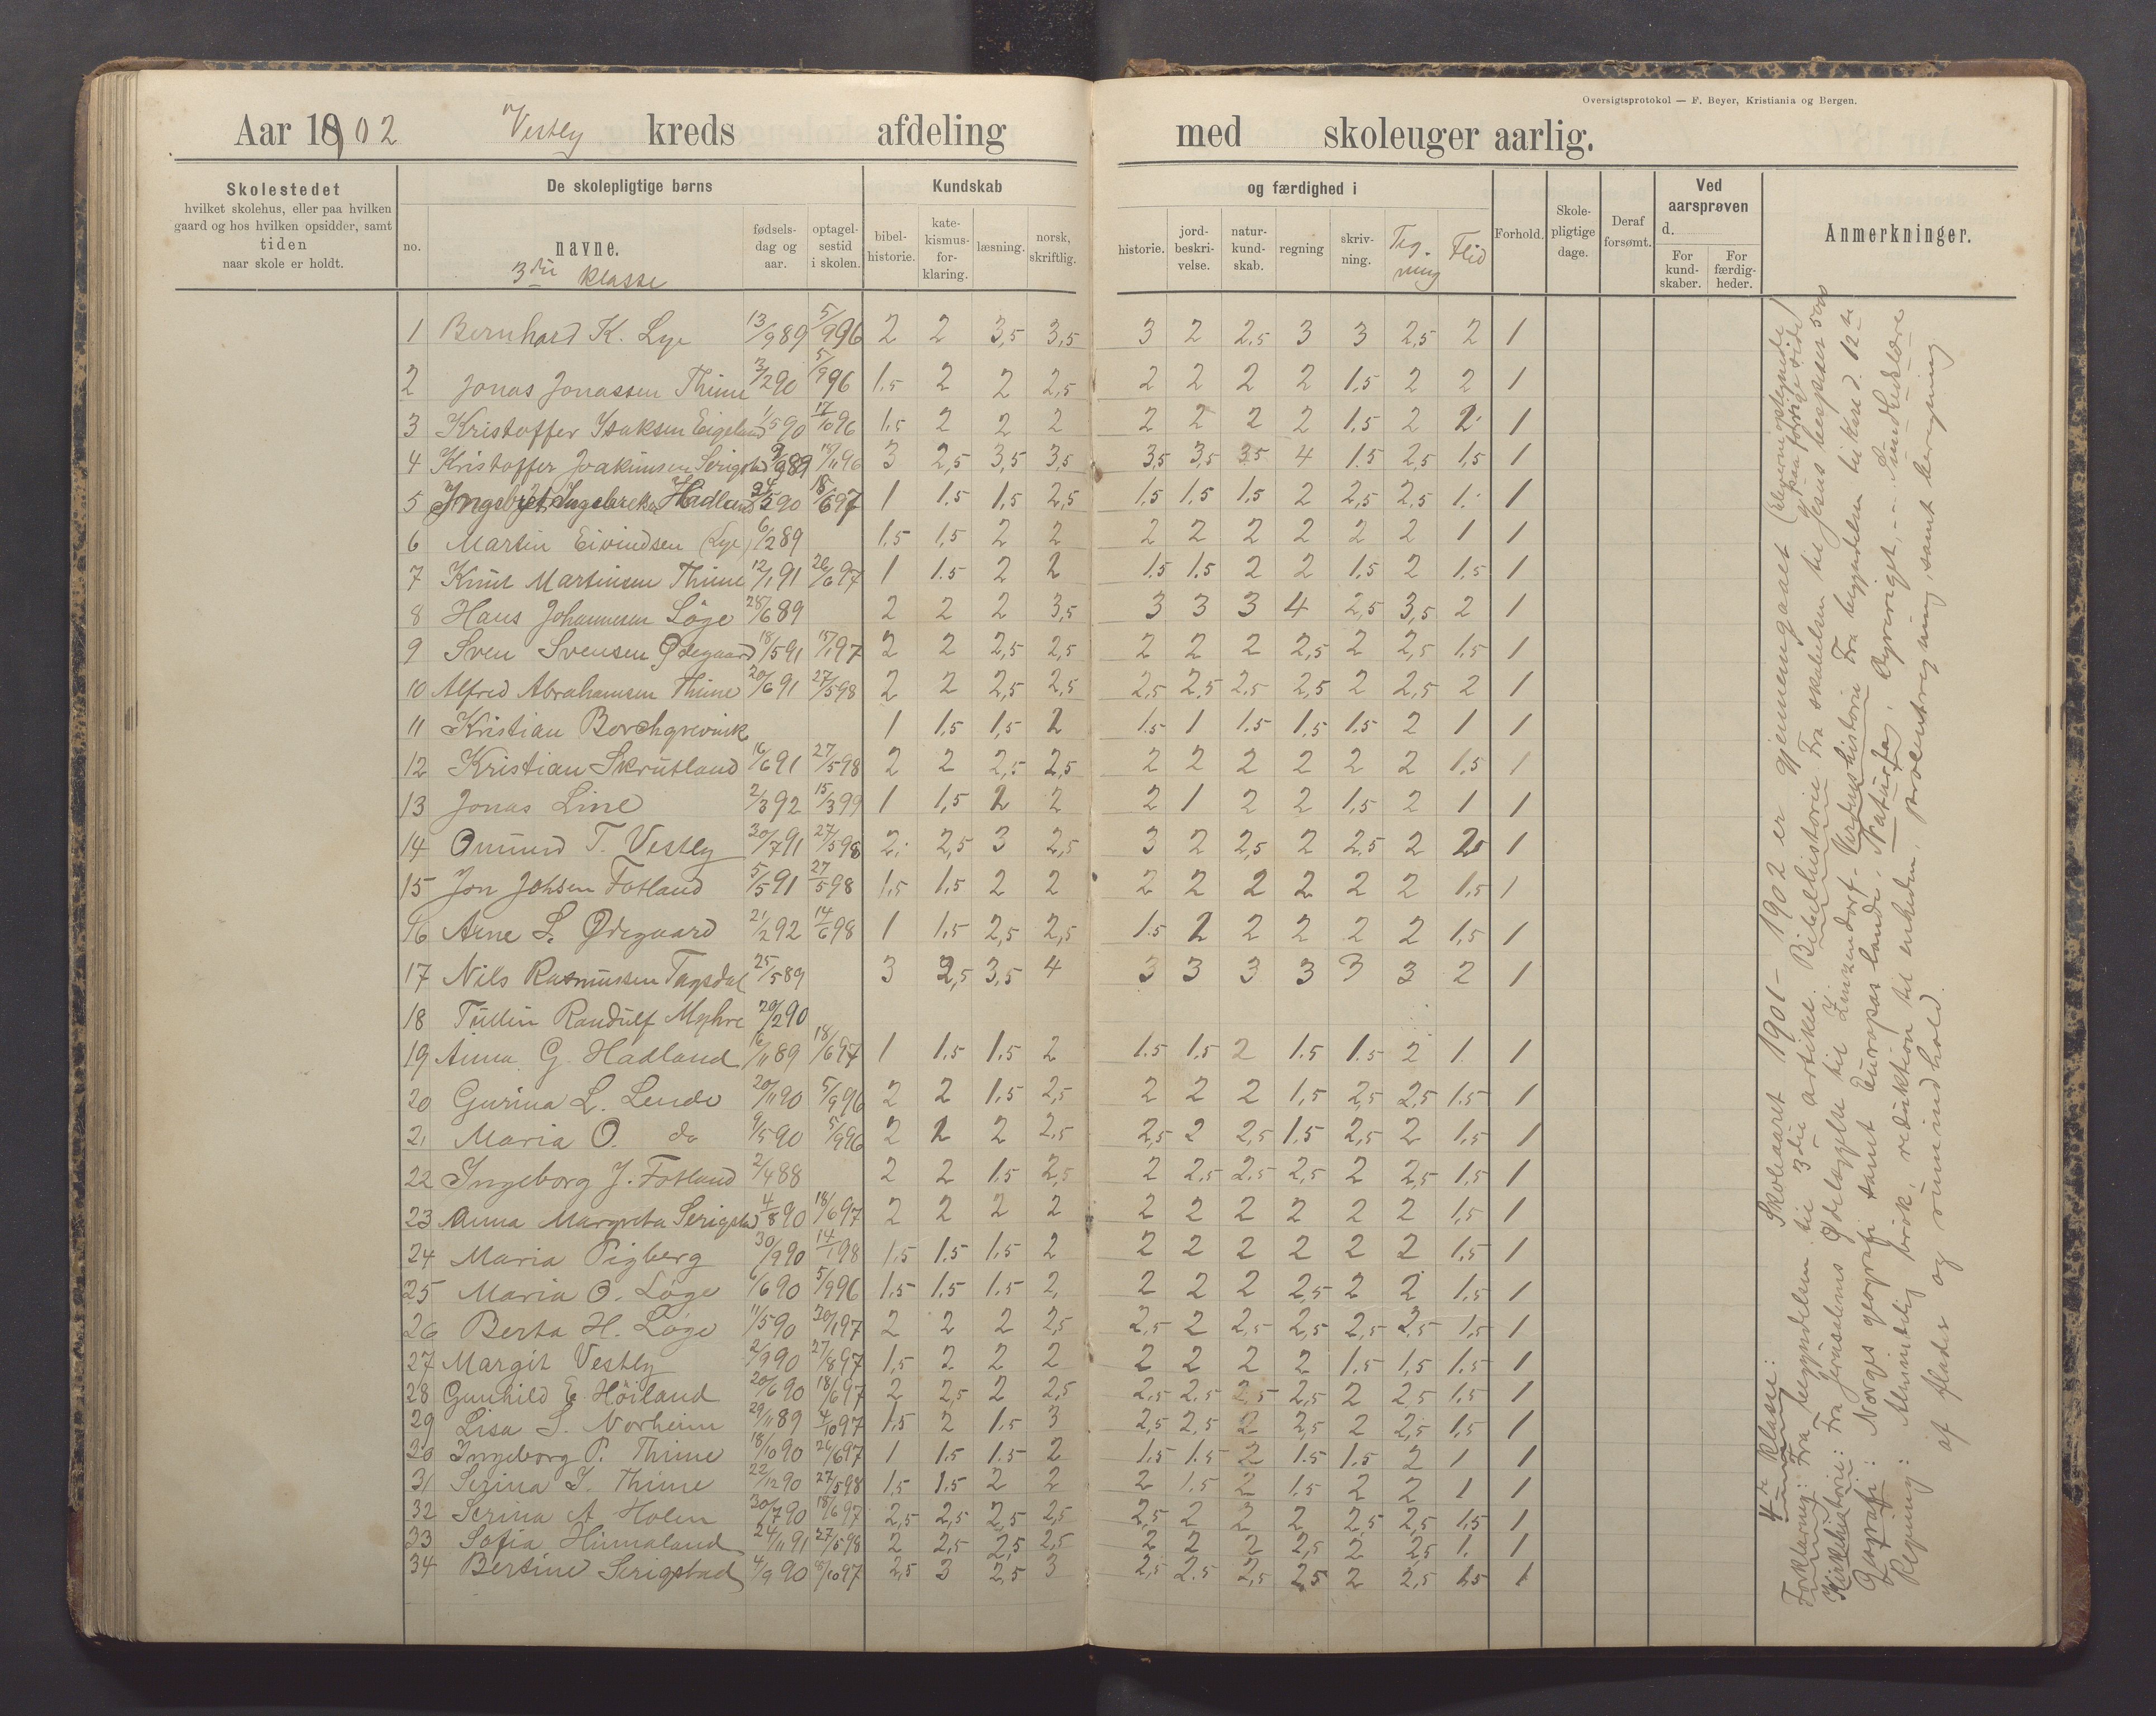 Oversigtsprotokol — F. Beyer, Kristiania og Bergen.
Aar 1902 Vestly kreds afdeling med skoleuger aarlig.
Skolestedet
hvilket skolehus, eller paa hvilken
gaard og hos hvilken opsidder, samt
tiden
naar skole er holdt.
De skolepligtige børns
no. navne. fødsels-dag og aar. optagel-sestid i skolen.
3die klasse
Kundskab og færdighed i
bibel-historie. kate-kismus-for-klaring. læsning. norsk, skriftlig. historie. jord-beskri-velse. natur-kund-skab. regning skriv-ning. Teg-ning Flid
Forhold. Skole-pligtige dage. Deraf forsømt.
Ved aarsprøven d.
For kund-skaber. For færdig-heder.
Anmerkninger.
1 Bernhard K. Lye 13/9 89 5/9 96 2 2 3,5 3,5 3 2 2,5 3 3 2,5 2 1
2 Jonas Jonassen Thime 3/2 90 5/9 96 1,5 2 2 2,5 2 2 2 2 1,5 2 2 1
3 Kristoffer Isaksen Eigeland 1/5 90 17/10 96 1,5 2 2 2 2 2 2 2 1,5 2 2 1
4 Kristoffer Joakimsen Serigstad 9/9 89 96 3 2,5 3,5 3,5 3,5 3,5 3,5 4 1.5 2,5 1,5 1
5 Ingebret Ingebretsen Hadland 5 90 18/6 97 1 1.5 1,5 2,5 1.5 1,5 1,5 2 2,5 2,5 1. 1
6 Martin Eivindsen (Lye) 6/2 89 1,5 1,5 2 2 2 2 2 2 2 2 1 1
7 Knut Martinsen Thime 12/1 91 26/6 97 1 1.5 2 2 1.5 1,5 2 2 1,5 2 1,5 1
8 Hans Johannesen Löge 28/6 89 2 2 2 3,5 3 3 3 4 2,5 3,5 2 1
9 Sven Svensen Ødegaard 18/5 91 15/1 97 2 2 2,5 2,5 2 2 2 2,5 2 2,5 1,5 1
10 Alfred Abrahamsen Thime 20/6 91 27/5 98 2 2 2,5 2,5 2,5 2,5 2,5 2,5 2 2,5 2 1
11 Kristian Borchgrevink 1 1,5 1,5 2 1.5 1 1.5 1,5 1,5 2 1 1
12 Kristian Skrutland 16/6 91 27/5 98 2 2 2,5 2,5 2 2 2 2 2 2 1,5 1
13 Jonas Line 2/3 92 15/3 99 1 1,5 2 2 2 1 2 2 1,5 2 1 1
14 Omund T. Vestly 30/7 91 27/5 98 2. 2,5 3 2,5 3 2 2,5 2 2,5 2 2,5 1
15 Jon Johsen Fotland 5/5 91 27/5 98 1,5 1,5 2 2 2 2 2 2 2 2 1,5 1
16 Arne L. Ødegaard 21/2 92 14/6 98 1 1,5 2,5 2,5 1.5 2 2 2 2 2 1,5 1
17 Nils Rasmussen Tagsdal 25/5 89 3 2,5 3,5 4 3 3 3 3 3 3 2 1
18 Tullin Randulf Myhre 20/2 90
19 Anna G. Hadland 16/11 89 18/6 97 1 1.5 1.5 2 1.5 1.5 2 1.5 1.5 2 1. 1
20 Gurina L. Lende 20/11 90 5/9 96 2 2 1.5 2,5 2 2 2 1,5 2,5 2,5 1.5 1
21 Maria O. do 9/5 90 5/9 96 2 2 2 2,5 2,5 2 2,5 1.5 2,5 2 1,5 1
22 Ingeborg J. Fotland 2/4 88 2 2 1.5 2,5 2 2,5 2,5 2,5 2 2,5 1,5 1
23 Anna Margreta Serigstad 4/8 90 18/6 97 2 2 2 2 2 2 2 2 2 2 1,5 1
24 Maria Tigberg 30/9 90 14/1 98 1,5 1.5 1,5 2 2 2 2 2 2 2 1,5 1
25 Maria O. Löge 6/6 90 5/9 96 1,5 1,5 1.5 2, 2 2 2 2,5 2 2 1,5 1
26 Berta H. Löge 11/5 90 20/1 97 2 2 2 2,5 2,5 2 2,5 2,5 2,5 2,5 1,5 1
27 Margit Vestly 2/9 90 27/8 97 1,5 2 2 2 2 2 2 2 1.5 1,5 1.5 1
28 Gunhild E. Höiland 20/6 90 18/6 97 2 2,5 2 2,5 2,5 2,5 2,5 2,5 2 2,5 1,5 1
29 Lisa S. Norheim 29/11 89 4/10 97 1,5 2 1.5 3 2,5 2,5 2 2,5 2 2,5 1,5 1
30 Ingeborg P. Thime 18/10 90 26/6 97 1 1.5 1.5 2 1.5 1.5 2 1.5 1,5 2 1 1
31 Serina I. Thime 22/12 90 27/5 98 1,5 1.5 2 2 2 1.5 2 1.5 2 2 1 1
32 Serina A Holen 30/7 90 18/6 97 2,5 2,5 2,5 2,5 2,5 2 2 2 2,5 2,5 1,5 1
33 Sofia Himaland 24/11 91 27/5 98 2 2,5 2,5 2,5 2 2 2 2,5 2 2,5 1. 1
34 Bertine Serigstad 4/9 90 97 2,5 3 2,5 3 2,5 2.5 2,5 2,5 2 2,5 1,5 1
4de klasse: Skoleaaret 1901 – 1902 er gjennemgaaet (Eleverne opføgende paa forrige side)
Forklaring: Fra begyndelsen til 3die artikel. Bibelhistorie Fra skabelsen til Jesus bespiser 5000
Kirkehistorie: Fra Jerusalems Ødelæggelse til Zinzendorf. Verdenshistorie Fra begyndelsen til 12te
Geografi: Norges geografi samt Europas lande. Naturfag: Dyreriget, – Sundhedslære
Regning: Almindelig brök, reduktion til enheden, procentregning, samt beregning
af flader og rumindhold.